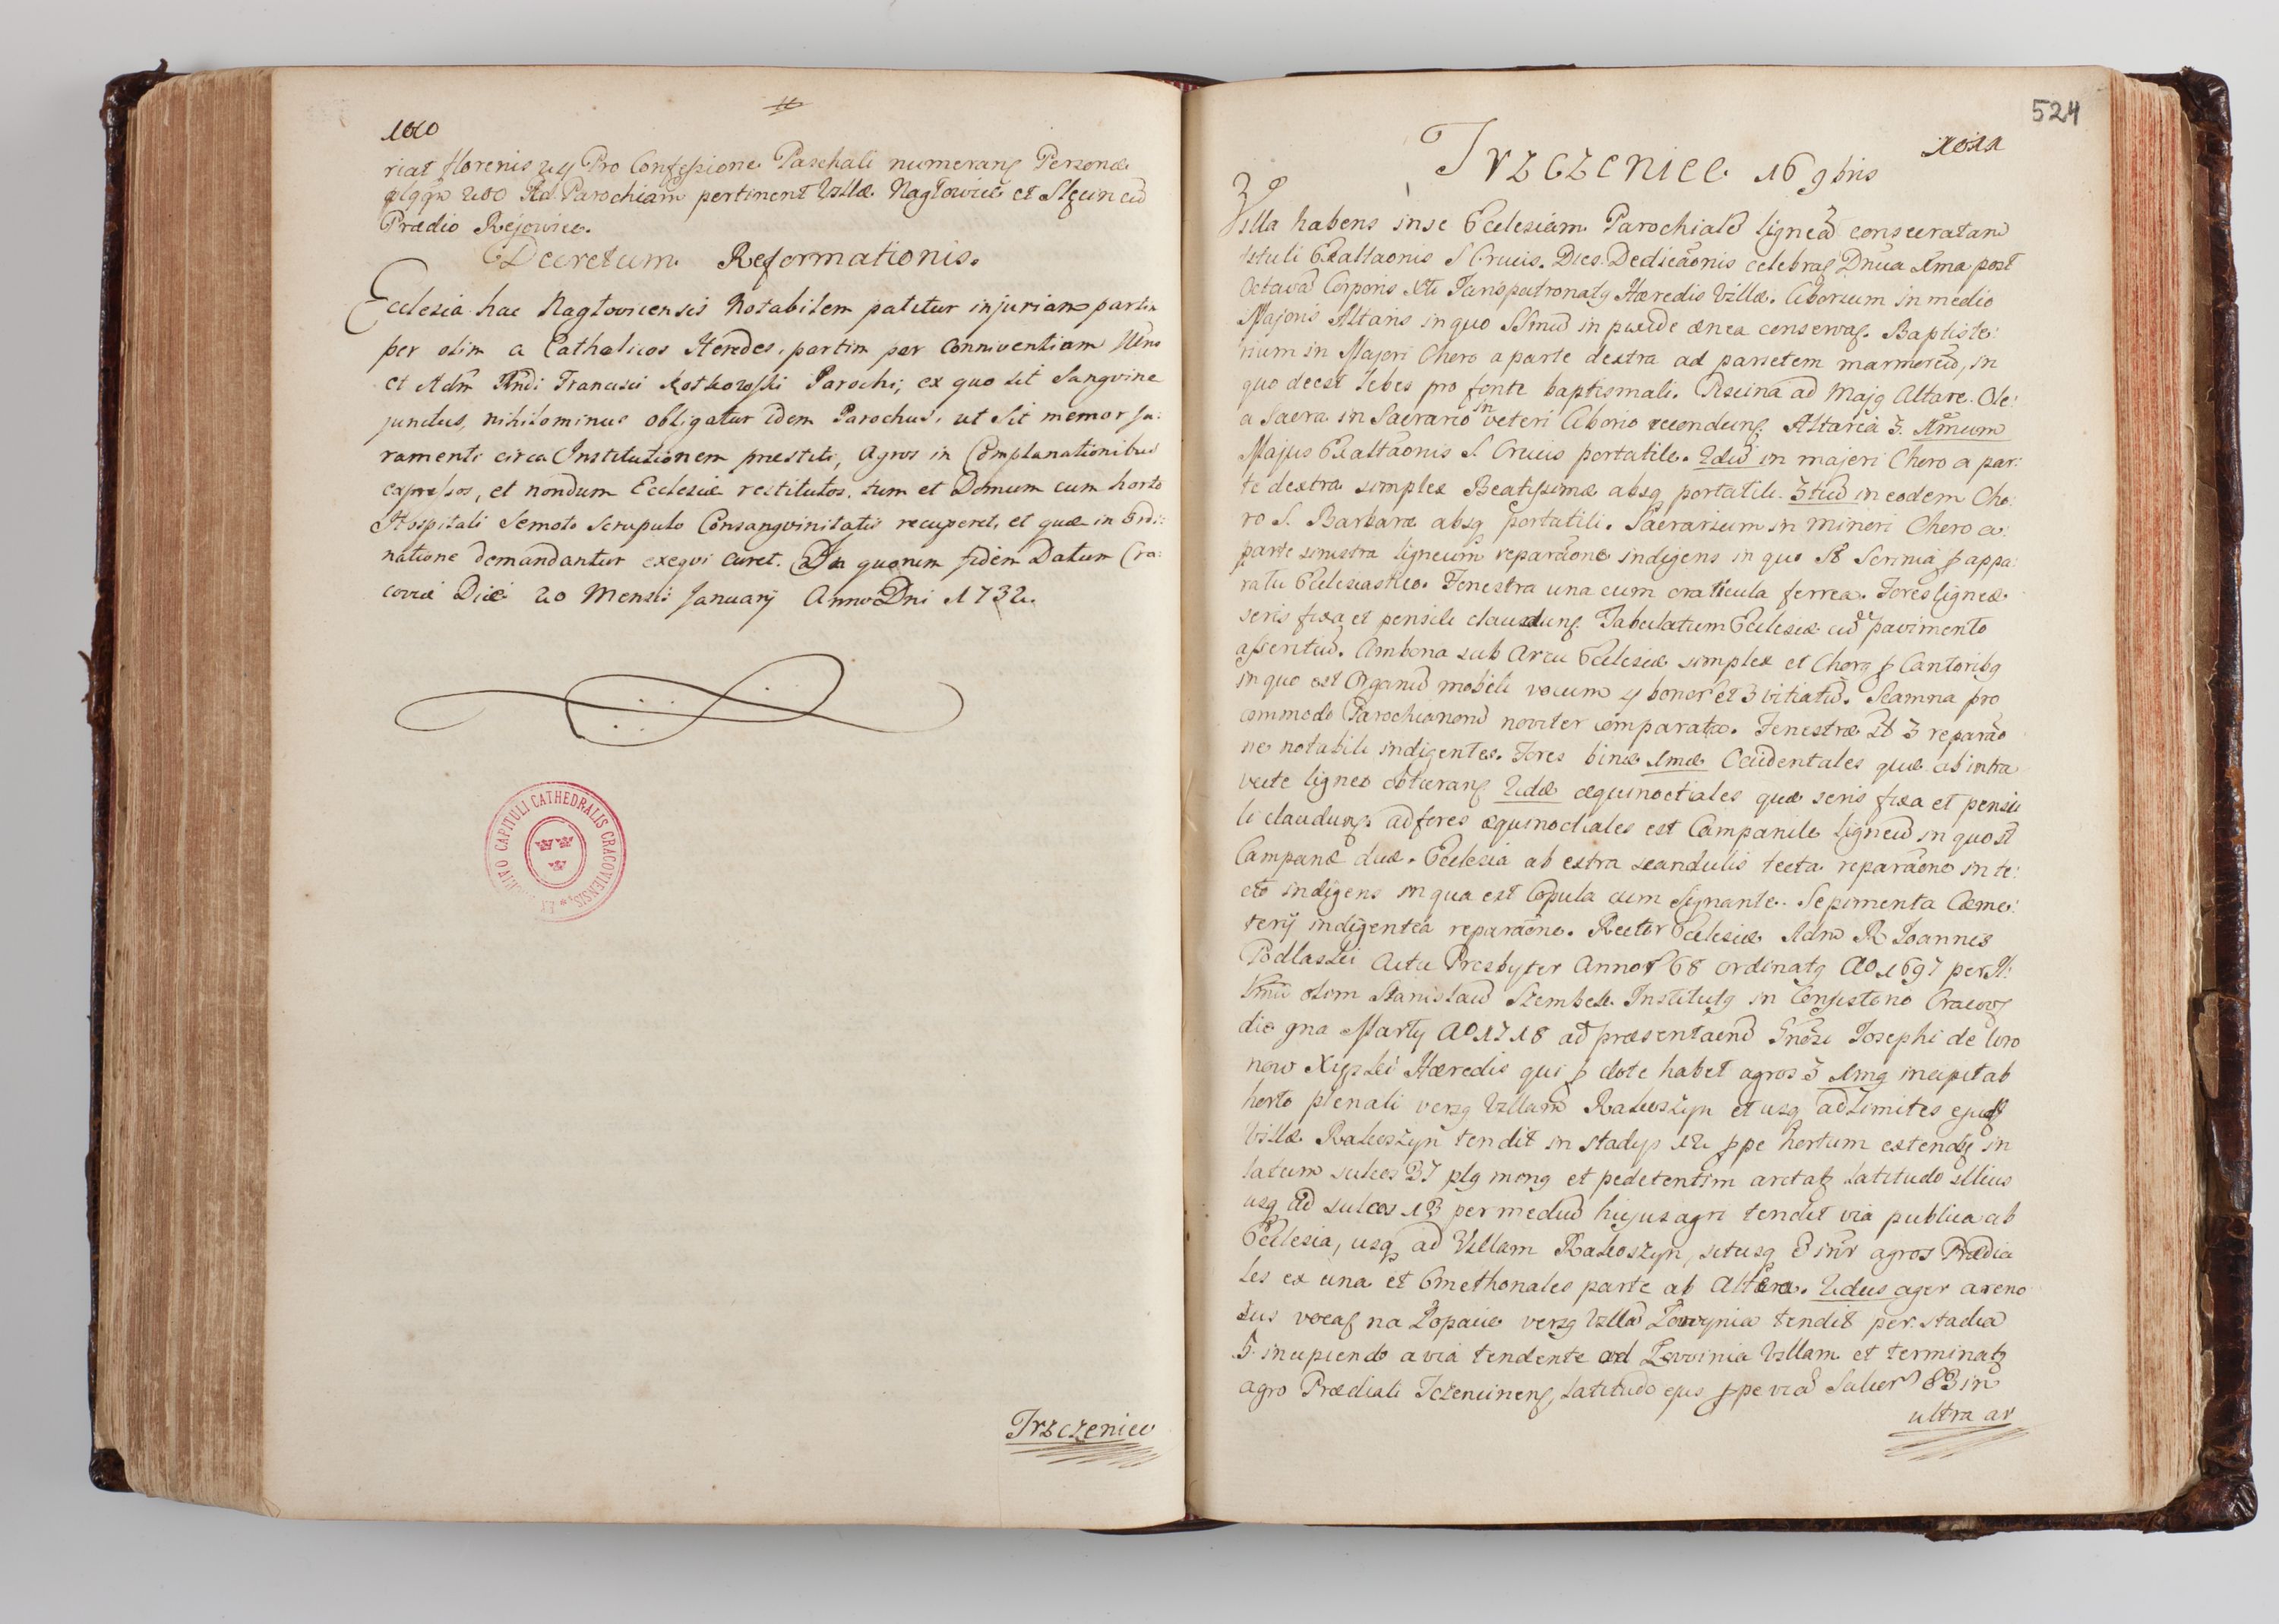 1010
riat florenis 24 Pro Confessione Paschali numeranʒ Personæ
plqqʒ 200 Ad Parochiam pertinent Villæ Nagłowice et Slęcin cũ
Prædio Rejowiec.
Decretum Reformationis.
Ecclesia hac Nagłovicensis Notabilem patitur injuriam partim
per olim a Catholicos Heredes, partim per Conniventiam
et Adm Rndi Francisci Koskowski Parochi, ex quo sit Sangvine
junctus, nihilominus obligatur idem Parochus, ut Sit memor Ju:
ramenti circa Institutionem prestiti, Agros in Complanationibus
expressos, et nondum Ecclesiæ restitutos, tum et Domum cum horto
Hospitali Semoto Scrupulo Consangvinitatis recuperet, et quæ in Ordi:
natione demandantur exeqvi curet. In quorum fidem Datum Cra:
coviæ Die 20 Mensis Januarij Anno Dni 1732.
EX ARCHIVO CAPITULI CATHEDRALIS CRACOVIENSIS
Trzczeniec
524
1011
Trzczeniec 16 9bris
Villa habens in se Ecclesiam Parochialẽ ligneã consecratam
tituli Exaltãonis S Crucis. Dies Dedicãonis celebraʒ Dnica 1ma post
Octavã Corporis Xti Jurispatronatʒ Hæredis Villæ. Ciborium in medio
Majoris Altaris in quo SSmũ in pixide ænea conservaʒ. Baptiste:
rium in Majori Choro a parte dextra ad parietem marmoreũ, in
quo deest lebes pro fonte baptismali. Piscina ad Majʒ Altare. Ole:
a Sacra in Sacrario in veteri Ciborio reconduntʒ. Altaria 3. 1mum
Majus Exaltãonis S. Crucis portatile. 2dũ in majori Choro a par:
te dextra simplex Beatissimæ absqʒ portatili. 3tiũ in eodem Cho:
ro S. Barbaræ absqʒ portatili. Sacrarium in minori Choro a
parte sinistra ligneum reparãone indigens in quo st Scrinia p appa:
ratu Ecclesiastico. Fenestra una cum craticula ferrea. Fores ligneæ
seris fixa et pensili clauduntʒ. Tabulatum Ecclesiæ cũ pavimento
asseritiũ. Ambona sub Arcu Ecclesiæ simplex et Chorʒ p Cantoribʒ
in quo est Organũ mobile vocum 4 bonor et 3 vitiatũ. Scamna pro
commodo Parochianorũ noviter comparata. Fenestræ st 3 reparão
ne notabili indigentes. Fores binæ 1mæ Occidentales quæ ab intra
vecte ligneo obturanʒ 2dæ æquinoctiales quæ seris fixa et pensi
li claudunʒ ad fores æquinoctiales est Campanile ligneũ in quo st
Campanæ duæ. Ecclesia ab extra scandulis tecta reparãone in te:
cto indigens in qua est Copula cum Signante. Sepimenta Cæme:
terij indigentia reparãone. Rector Ecclesiæ Adm R Joannes
Podlaski Actu Presbyter Annor 68 ordinatʒ Ao 1697 per Il:
lmũ olim Stanislaũ Szembek. Institutʒ in Consistorio Cracovʒ
die 9na Martij Ao 1718 ad præsentãonẽ Gnõsi Josephi de
now Xięski Hæredis qui p dote habet agros 3 1mʒ incipit ab
horto plebali versʒ Villam Rakoszyn et usqʒ ad limites ejusd
Villæ Rakoszyn tendit in stadijs 12 ppe hortum extendiʒ in
latum sulcos 37 plʒ minʒ et pedetentim arctatʒ latitudo illius
usqʒ ad sulcos 13 per mediũ hujus agri tendit via publica ab
Ecclesia, usqʒ ad Villam Rakoszyn, situsqʒ ẽ intr agros Prædia
les ex una et Cmethonales parte ab altera. 2dus ager areno
sus vocaʒ na Łopacie versʒ Villã Łowynia tendit per stadia
5 incipiendo a via tendente ad Łowinia Villam et terminatʒ
agro Prædiali Tczenicinenʒ, latitudo ejus ppe viã Sulcor 83 in
ultra ar